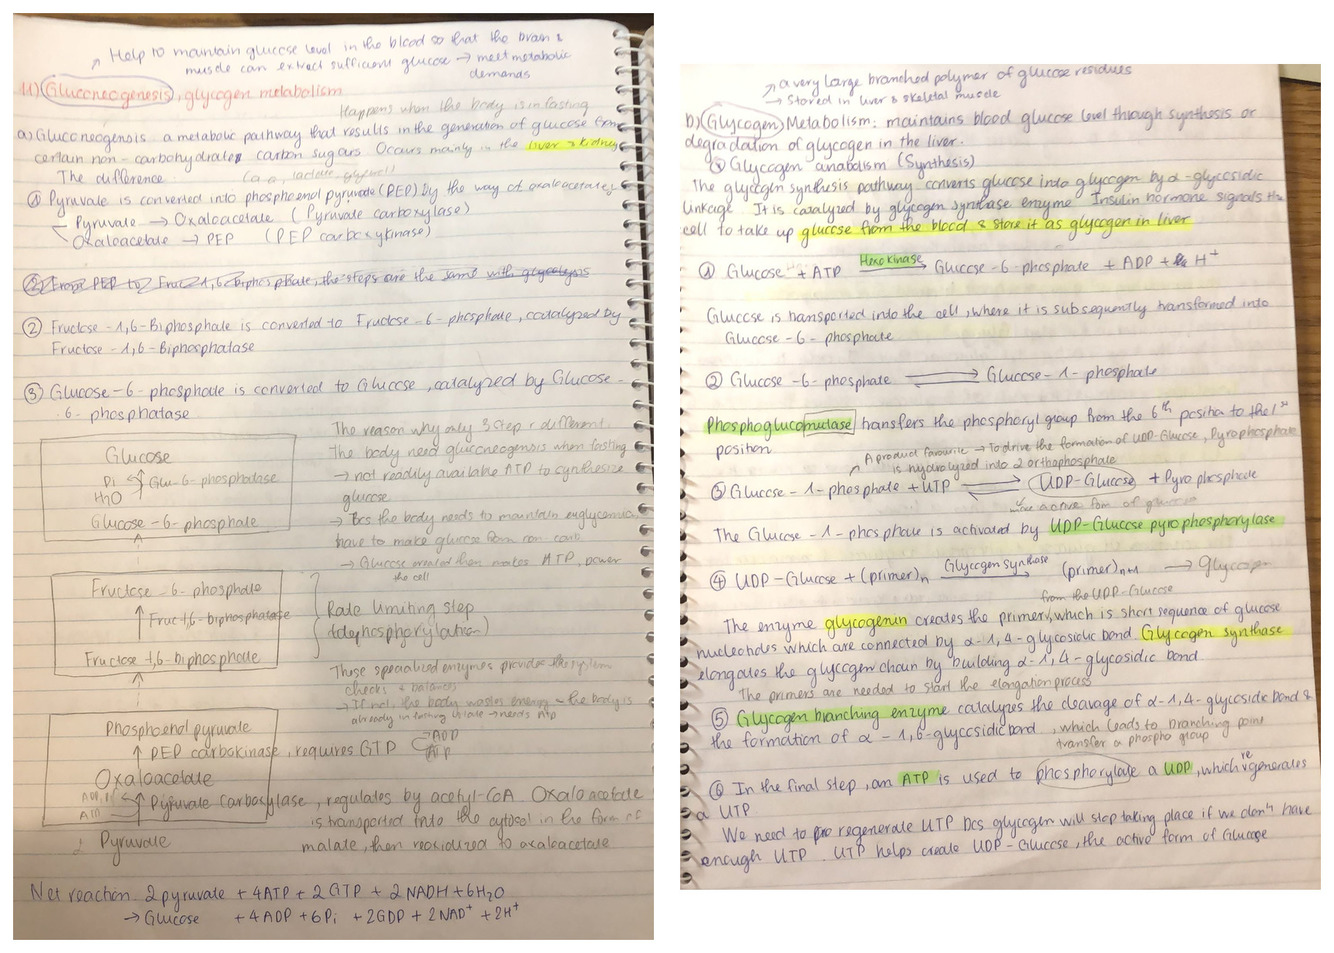 Help to maintain glucose level in the blood so that the brain &
muscle can extract sufficient glucose → meet metabolic
demands
11) Gluconeogenesis, glycogen metabolism
Happens when the body is in fasting
a) Gluconeogenesis a metabolic pathway that results in the generation of glucose from
certain non-carbohydrates carbon sugars. Occurs mainly in the liver & kidney
The difference (a.a, lactate, glycerol)
① Pyruvate is converted into phosphoenol pyruvate (PEP) by the way of oxaloacetate
Pyruvate → Oxaloacetate (Pyruvate carboxylase)
Oxaloacetate → PEP (PEP carboxykinase)
② From PEP to Fruc-1,6-Biphosphate, the steps are the same with glycolysis
② Fructose-1,6-Biphosphate is converted to Fructose-6-phosphate, catalyzed by
Fructose-1,6-Biphosphatase
③ Glucose-6-phosphate is converted to Glucose, catalyzed by Glucose-
6-phosphatase
Glucose
Pi
H2O
Glu-6-phosphatase
Glucose-6-phosphate
The reason why only 3 step r different.
The body need gluconeogenesis when fasting
→ not readily available ATP to synthesize
glucose
→ Bcs the body needs to maintain euglycemia
have to make glucose from non-carb.
→ Glucose created then makes ATP, power
the cell
Fructose-6-phosphate
Fruc-1,6-biphosphatase
Fructose-1,6-biphosphate
Rate limiting step
(dephosphorylation)
These specialised enzymes provides the system
checks + balances
→ If not, the body wastes energy the body is
already in fasting → needs ATP
Phosphoenol pyruvate
PEP carbokinase, requires GTP
ADP
ATP
Oxaloacetate
ADP, Pi
ATP
Pyruvate Carboxylase, regulates by acetyl-CoA. Oxaloacetate
is transported into the cytosol in the form of
Pyruvate
malate, then reoxidized to oxaloacetate
Net reaction. 2 pyruvate + 4ATP + 2 GTP + 2 NADH + 6H2O
→ Glucose + 4 ADP + 6Pi + 2GDP + 2 NAD+ + 2H+
a very large branched polymer of glucose residues
→ stored in liver & skeletal muscle
b) Glycogen Metabolism: maintains blood glucose level through synthesis or
degradation of glycogen in the liver.
Glycogen anabolism (Synthesis)
The glycogen synthesis pathway converts glucose into glycogen by α-glycosidic
linkage. It is catalyzed by glycogen synthase enzyme. Insulin hormone signals the
cell to take up glucose from the blood & store it as glycogen in liver
① Glucose + ATP Hexokinase Glucose-6-phosphate + ADP + H+
Glucose is transported into the cell, where it is subsequently transformed into
Glucose-6-phosphate
② Glucose-6-phosphate ⇌ Glucose-1-phosphate
Phosphoglucomutase transfers the phosphoryl group from the 6th position to the 1st
position.
A product favourite → To drive the formation of UDP-Glucose, Pyrophosphate
is hydrolyzed into 2 orthophosphate
③ Glucose-1-phosphate + UTP ⇌ UDP-Glucose + Pyrophosphate
the active form of glucose
The Glucose-1-phosphate is activated by UDP-Glucose pyrophosphorylase
④ UDP-Glucose + (primer)n Glycogen synthase (primer)n+1 → glycogen
from the UDP-Glucose
The enzyme glycogenin creates the primers, which is short sequence of glucose
nucleotides which are connected by α-1,4-glycosidic bond. Glycogen synthase
elongates the glycogen chain by building α-1,4-glycosidic bond
The primers are needed to start the elongation process
⑤ Glycogen branching enzyme catalyzes the cleavage of α-1,4-glycosidic bond &
the formation of α-1,6-glycosidic bond, which leads to branching point
transfer a phospho group
⑥ In the final step, an ATP is used to phosphorylate a UDP, which regenerates
a UTP
We need to regenerate UTP bcs glycogen will stop taking place if we don't have
enough UTP. UTP helps create UDP-Glucose, the active form of Glucose